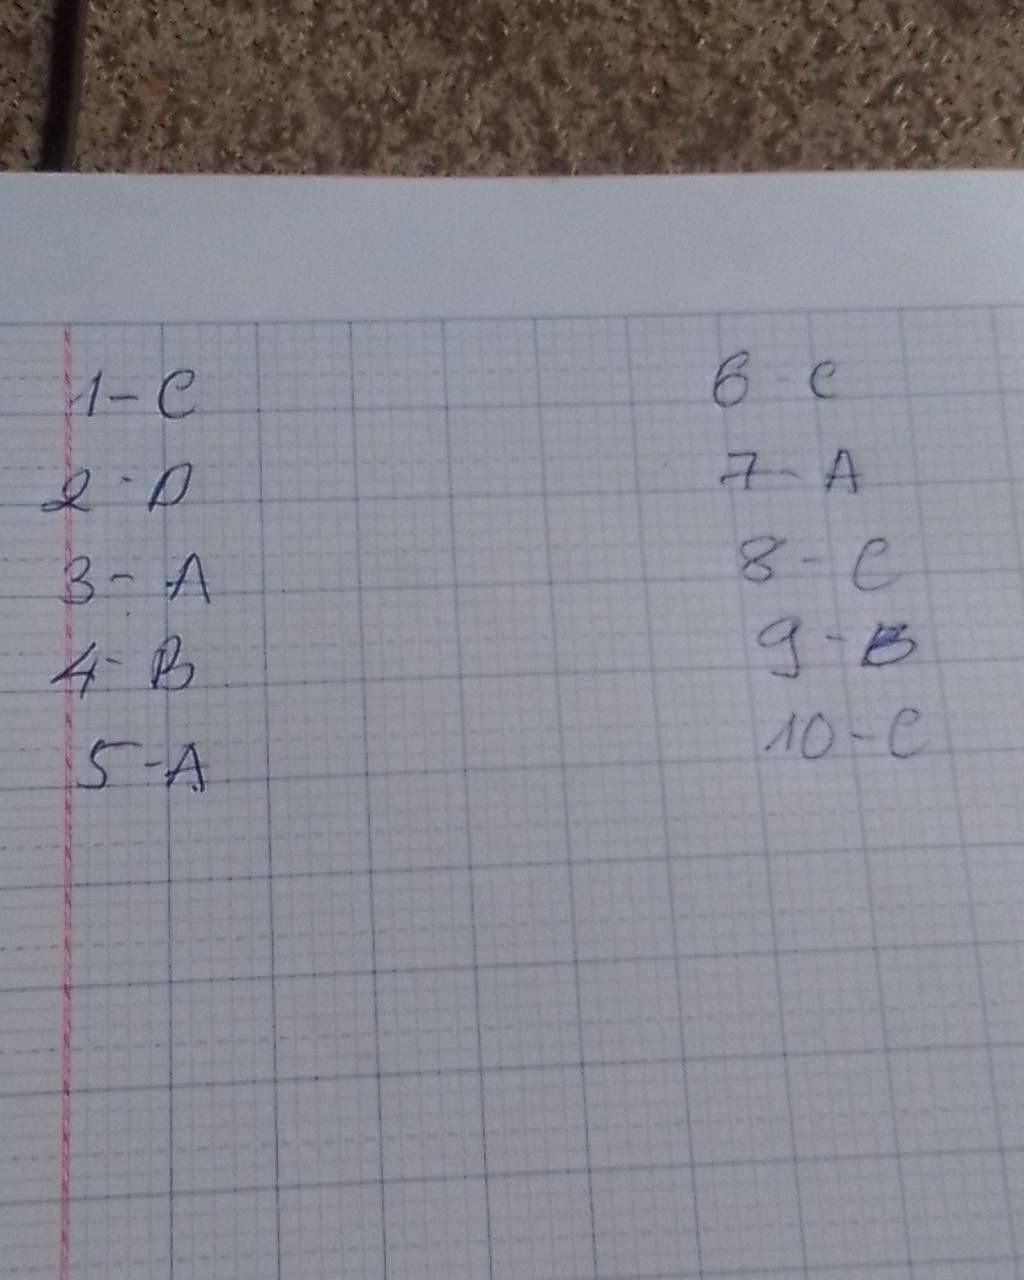 1-C
2-D
3-A
4-B
5-A
6-C
7-A
8-C
9-B
10-C